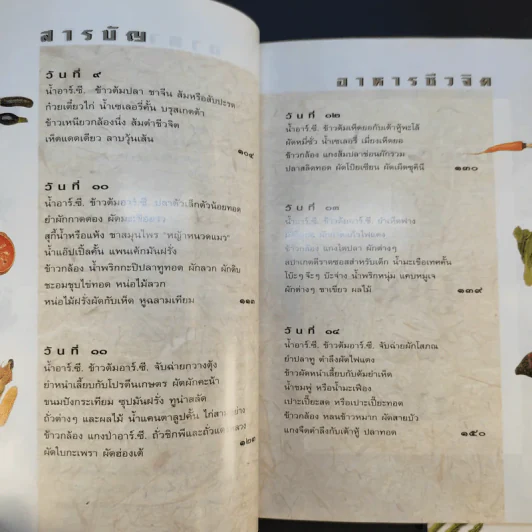 สารบัญ
วันที่ ๙
น้ำอาร์.ซี. ข้าวต้มปลา ชาจีน ส้มหรือสับปะรด
ก๋วยเตี๋ยวไก่ น้ำเซเลอรี่คั้น บรุสเกตต้า
ข้าวเหนียวกล้องนึ่ง ส้มตำชีวจิต
เห็ดแดดเดียว ลาบวุ้นเส้น
๑๐๔
วันที่ ๑๐
น้ำอาร์.ซี. ข้าวต้มอาร์.ซี. ปลาตัวเล็กตัวน้อยทอด
ยำผักกาดดอง
สุกี้น้ำหรือแห้ง ชาสมุนไพร "หญ้าหนวดแมว"
น้ำแอ๊ปเปิ้ลคั้น แพนเค้กมันฝรั่ง
ข้าวกล้อง น้ำพริกกะปิปลาทูทอด ผักลวก ผักดิบ
ชะอมชุบไข่ทอด หน่อไม้ลวก
หน่อไม้ฝรั่งผัดกับเห็ด หูฉลามเทียม
๑๑๓
วันที่ ๑๑
น้ำอาร์.ซี. ข้าวต้มอาร์.ซี. จับฉ่ายกวางตุ้ง
ยำหนำเลี้ยบกับโปรตีนเกษตร ผัดผักคะน้า
ขนมปังกระเทียม ซุปมันฝรั่ง ทูน่าสลัด
ถั่วต่างๆ และผลไม้ น้ำแคนตาลูปคั้น
ข้าวกล้อง แกงป่าอาร์.ซี. ถั่วซิกพีและถั่วแดงหลวง
ผัดใบกะเพรา ผัดฮ่องเต้
๑๒๓
อาหารชีวจิต
วันที่ ๑๒
น้ำอาร์.ซี. ข้าวต้มเห็ดหอมกับเต้าหู้พะโล้
ผัดหมี่ซั่ว น้ำเซเลอรี่ เมี่ยงเห็ดหอม
ข้าวกล้อง แกงส้มปลาช่อนผักรวม
ปลาสลิดทอด ผัดโป๊ยเซียน ผัดเผ็ดซูคินี่
๑๓๐
วันที่ ๑๓
น้ำอาร์.ซี. ข้าวต้มอาร์.ซี.
ข้าวกล้อง แกงไตปลา ผักต่างๆ
สปาเกตตีราดซอสสำหรับเด็ก น้ำมะเขือเทศคั้น
โป๊ะๆจ๊ะๆ ปิ๊ะจ่าง น้ำพริกหนุ่ม แคบหมูเจ
ผักต่างๆ ชาเขียว ผลไม้
๑๓๙
วันที่ ๑๔
น้ำอาร์.ซี. ข้าวต้มอาร์.ซี. จับฉ่ายผักโสภณ
ยำปลาทู ตำลึงผัดไฟแดง
ข้าวผัดหนำเลี้ยบกับต้มยำเห็ด
น้ำชมพู่ หรือน้ำมะเฟือง
เปาะเปี๊ยะสด หรือเปาะเปี๊ยะทอด
ข้าวกล้อง หลนข้าวหมาก ผัดสายบัว
แกงจืดตำลึงกับเต้าหู้ ปลาทอด
๑๕๐